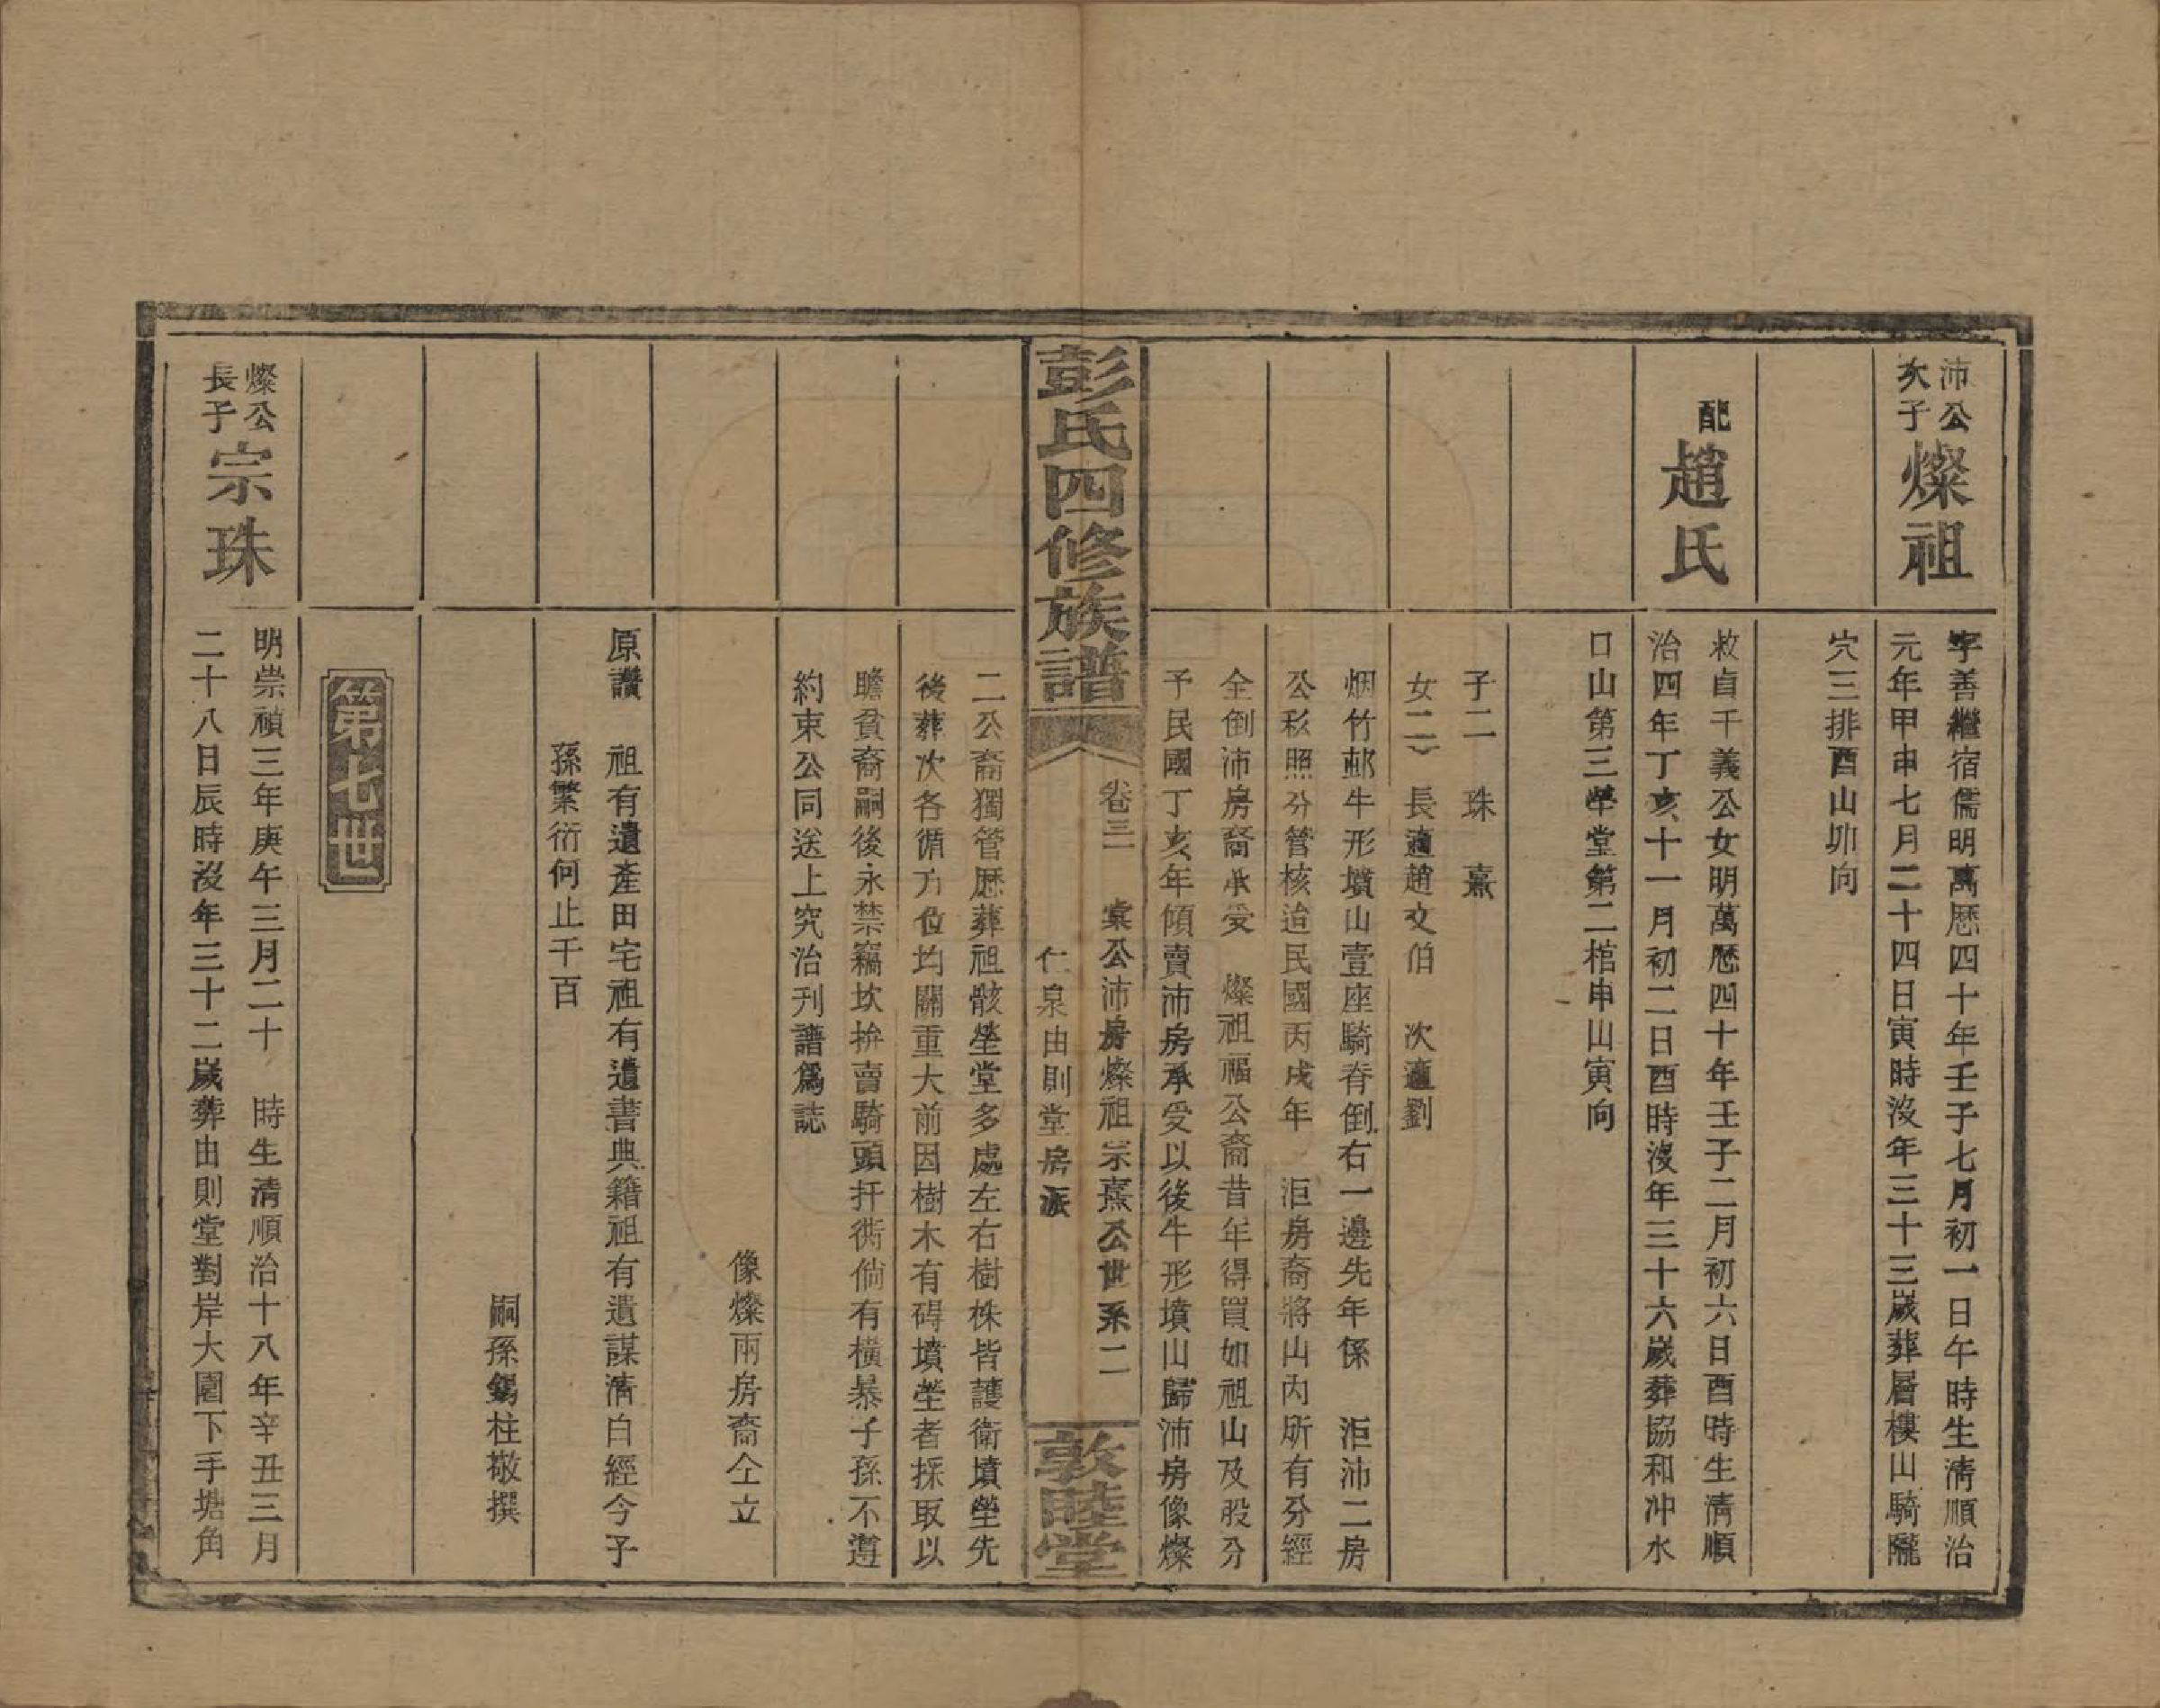 沛公
次子
燦祖
字善繼宿儒明萬歷四十年壬子七月初一日午時生淸順治
元年甲申七月二十四日寅時沒年三十三歲葬層樓山騎隴
穴三排酉山卯向
配
趙氏
救貞千義公女明萬歷四十年壬子二月初六日酉時生淸順
治四年丁亥十一月初二日酉時沒年三十六歲葬協和冲水
口山第三塋堂第二棺申山寅向
子二　珠　熹
女二　長適趙文伯　次適劉
烟竹邺牛形墳山壹座騎脊倒右一邊先年係　洰沛二房
公移照分管核迨民國丙戌年　洰房裔將山內所有分經
全倒沛房裔承受　燦祖福公裔昔年得買如祖山及股分
予民國丁亥年傾賣沛房承受以後牛形墳山歸沛房像燦
彭氏四修族譜
卷三　棠公沛房燦祖宗熹公世系二
仁泉由則堂房派
敦睦堂
二公裔獨管歷葬祖骸塋堂多處左右樹株皆護衛墳塋先
後葬次各循方位均關重大前因樹木有碍墳塋者採取以
瞻貧裔嗣後永禁竊坎拚賣騎頭扦衖倘有橫暴子孫不遵
約束公同送上究治刋譜爲誌
像燦兩房裔仝立
原讚　祖有遺產田宅祖有遺書典籍祖有遺謀淸白經今子
孫繁衍何止千百
嗣孫錫柱敬撰
第七世
燦公
長子
宗珠
明崇禎三年庚午三月二十　時生淸順治十八年辛丑三月
二十八日辰時沒年三十二歲葬由則堂對岸大園下手塘角